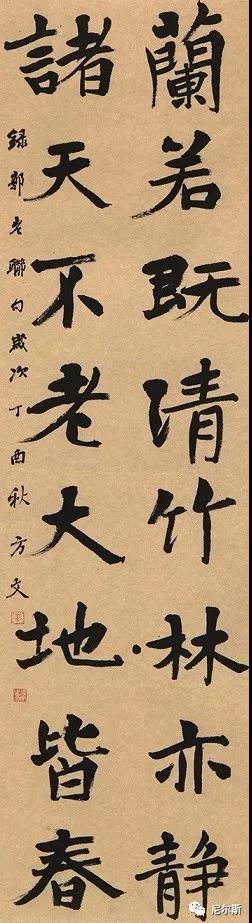 蘭若既清竹林亦静
諸天不老大地皆春
録郭老聯句歲次丁酉秋方文
尼尔斯